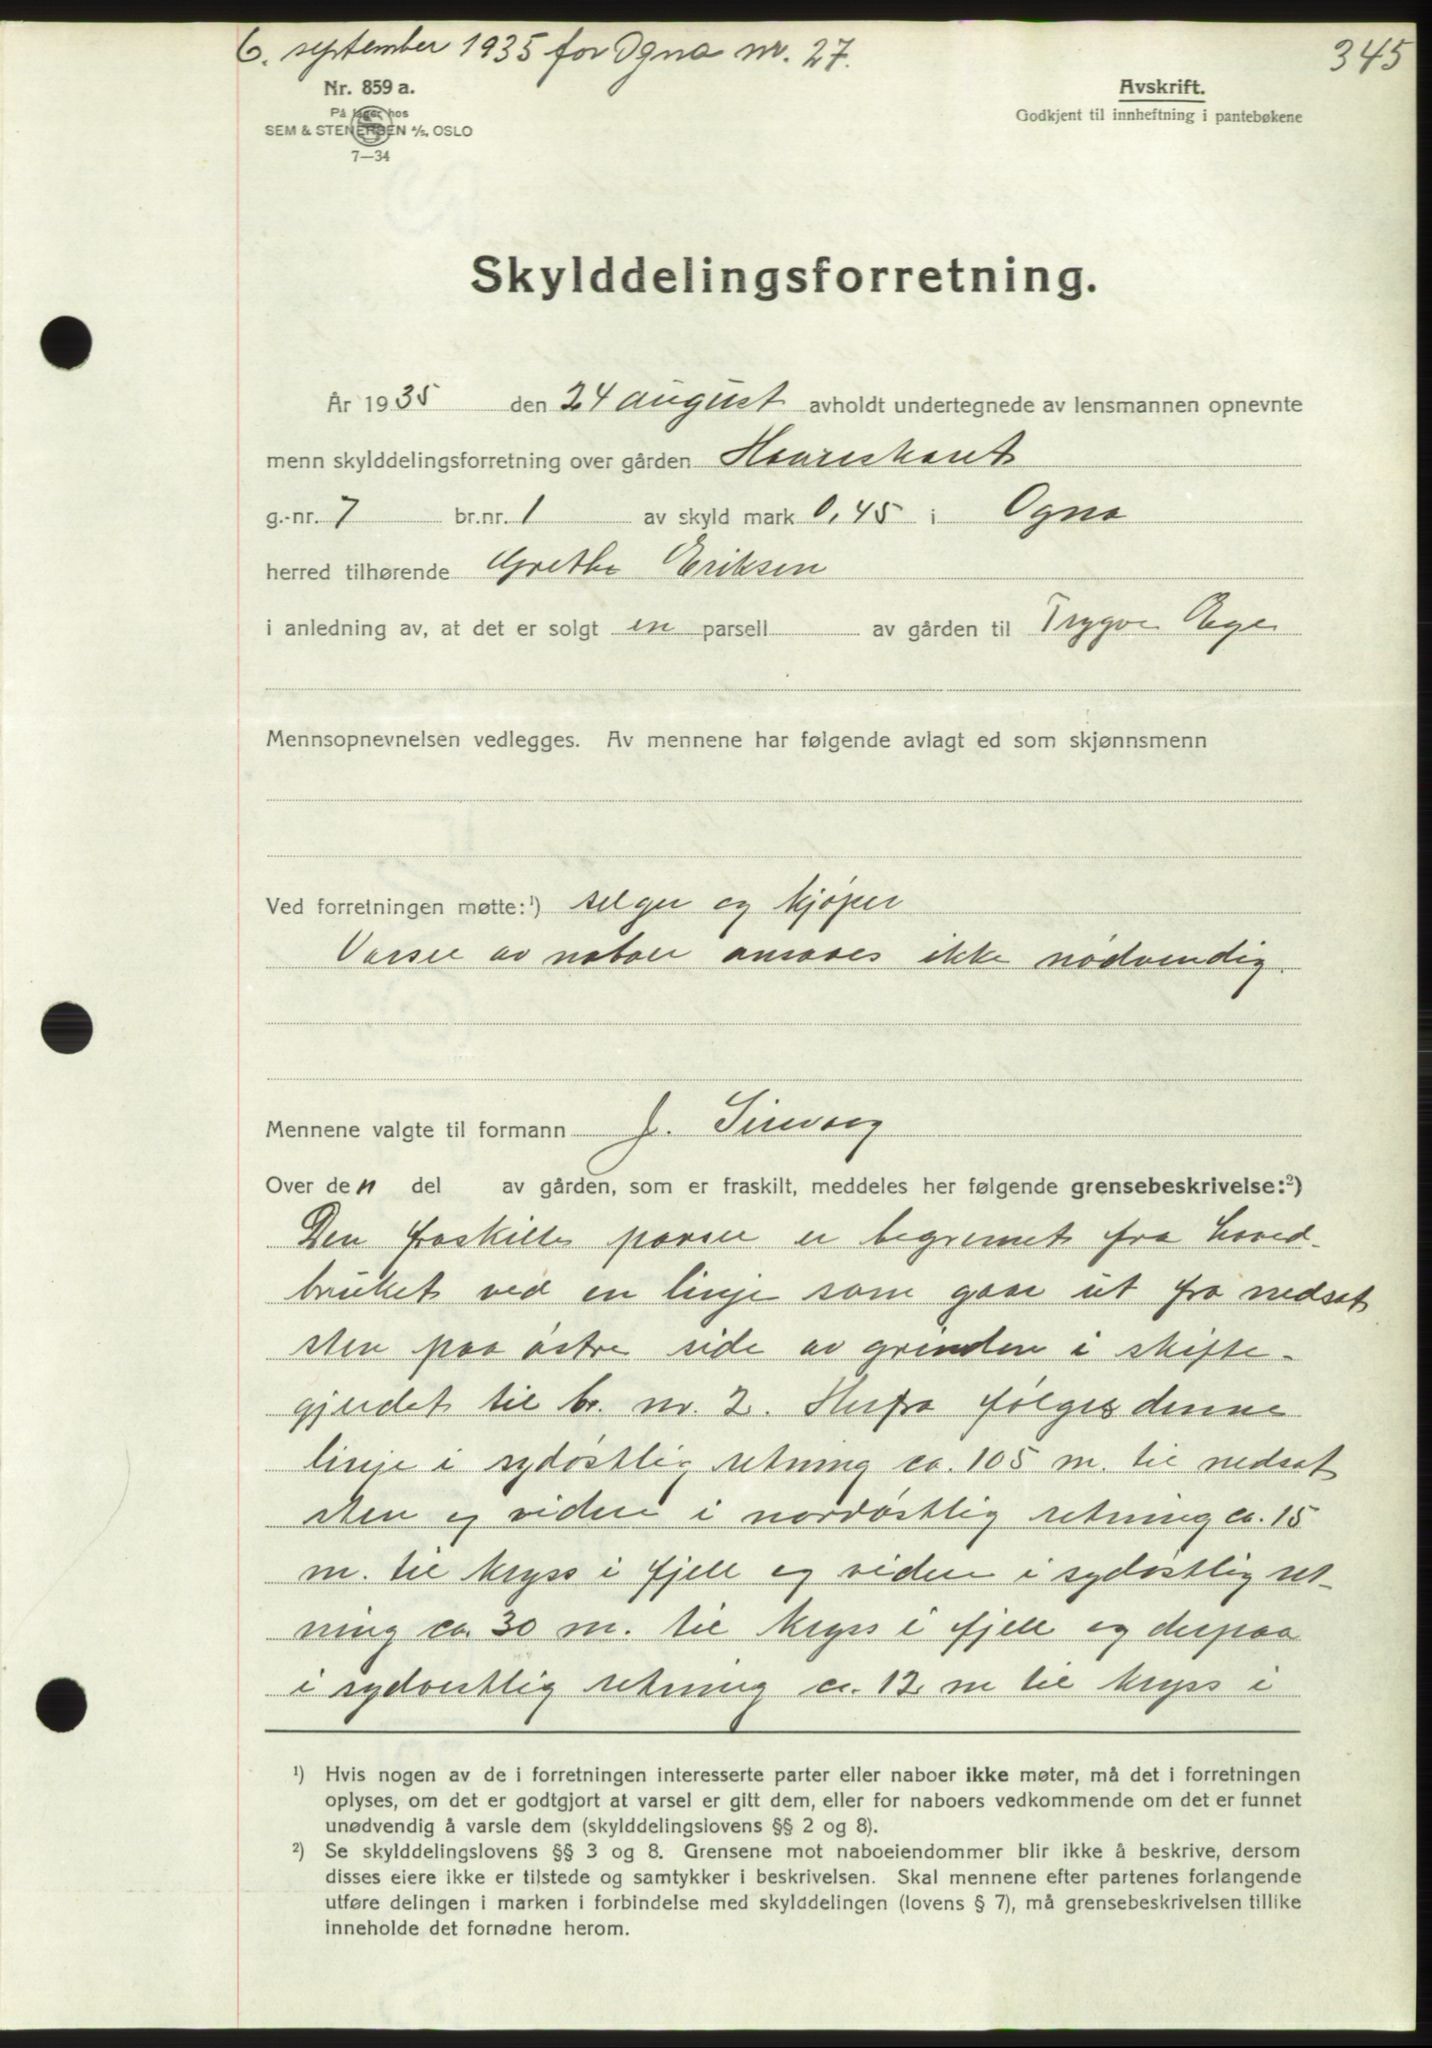 6. september 1935 for Ogna nr. 27.
345
Nr. 859 a.
På lager hos
SEM & STENERSEN A/S. OSLO
7—34
Avskrift.
Godkjent til innheftning i pantebøkene
Skylddelingsforretning.
År 1935 den 24 august avholdt undertegnede av lensmannen opnevnte
menn skylddelingsforretning over gården
g.-nr. 7 br.nr. 1 av skyld mark 0,45 i Ogna
herred tilhørende Grethe Eriksen
i anledning av, at det er solgt en parsell av gården til Trygve Ege
Mennsopnevnelsen vedlegges. Av mennene har følgende avlagt ed som skjønnsmenn
Ved forretningen møtte:¹) selger og kjøper
Varsel av naboer ansaaes ikke nødvendig.
Mennene valgte til formann J. Sirevaag
Over den del av gården, som er fraskilt, meddeles her følgende grensebeskrivelse:²)
Den fraskilte parsel er begrenset fra hoved-
bruket ved en linje som gaar ut fra nedsat
sten paa østre side av grinden i skifte-
gjerdet til br. nr. 2. Herfra følges denne
linje i sydøstlig retning ca. 105 m. til nedsat
sten og videre i nordøstlig retning ca. 15
m. til kryss i fjell og videre i sydøstlig ret-
ning ca. 30 m. til kryss i fjell og derpaa
i sydvestlig retning ca. 12 m til kryss i
¹) Hvis nogen av de i forretningen interesserte parter eller naboer ikke møter, må det i forretningen
oplyses, om det er godtgjort at varsel er gitt dem, eller for naboers vedkommende om det er funnet
unødvendig å varsle dem (skylddelingslovens §§ 2 og 8).
²) Se skylddelingslovens §§ 3 og 8. Grensene mot naboeiendommer blir ikke å beskrive, dersom
disses eiere ikke er tilstede og samtykker i beskrivelsen. Skal mennene efter partenes forlangende
utføre delingen i marken i forbindelse med skylddelingen (lovens § 7), må grensebeskrivelsen tillike
inneholde det fornødne herom.